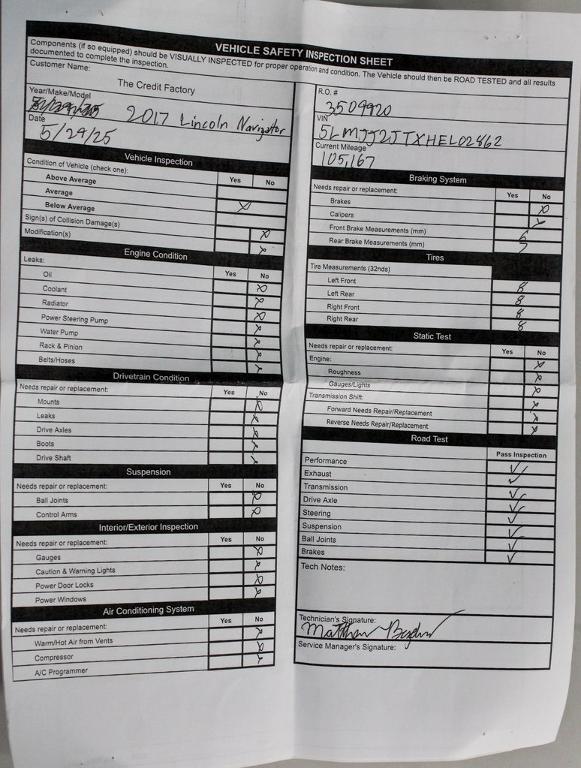 VEHICLE SAFETY INSPECTION SHEET
Components (if so equipped) should be VISUALLY INSPECTED for proper operation and condition. The Vehicle should then be ROAD TESTED and all results
documented to complete the inspection.
Customer Name:
The Credit Factory
Year/Make/Model
2017 Lincoln Navigator
Date
5/29/25
R.O. #
3509920
VIN
5LMJJ2JTXHEL02462
Current Mileage
105,167
Vehicle Inspection
Condition of Vehicle (check one): Yes No
Above Average
Average
Below Average X
Sign(s) of Collision Damage(s) X
Modification(s) X
Engine Condition
Leaks: Yes No
Oil X
Coolant X
Radiator X
Power Steering Pump X
Water Pump X
Rack & Pinion X
Belts/Hoses X
Drivetrain Condition
Needs repair or replacement: Yes No
Mounts X
Leaks X
Drive Axles X
Boots X
Drive Shaft X
Suspension
Needs repair or replacement: Yes No
Ball Joints X
Control Arms X
Interior/Exterior Inspection
Needs repair or replacement: Yes No
Gauges X
Caution & Warning Lights X
Power Door Locks X
Power Windows X
Air Conditioning System
Needs repair or replacement: Yes No
Warm/Hot Air from Vents X
Compressor X
A/C Programmer X
Braking System
Needs repair or replacement: Yes No
Brakes X
Calipers X
Front Brake Measurements (mm)
Rear Brake Measurements (mm)
Tires
Tire Measurements (32nds)
Left Front 8
Left Rear 8
Right Front 8
Right Rear 8
Static Test
Needs repair or replacement: Yes No
Engine: X
Roughness X
Gauges/Lights X
Transmission Shift: X
Forward Needs Repair/Replacement X
Reverse Needs Repair/Replacement X
Road Test
Pass Inspection
Performance ✓
Exhaust ✓
Transmission ✓
Drive Axle ✓
Steering ✓
Suspension ✓
Ball Joints ✓
Brakes ✓
Tech Notes:
Technician's Signature:
Matthew
Service Manager's Signature: